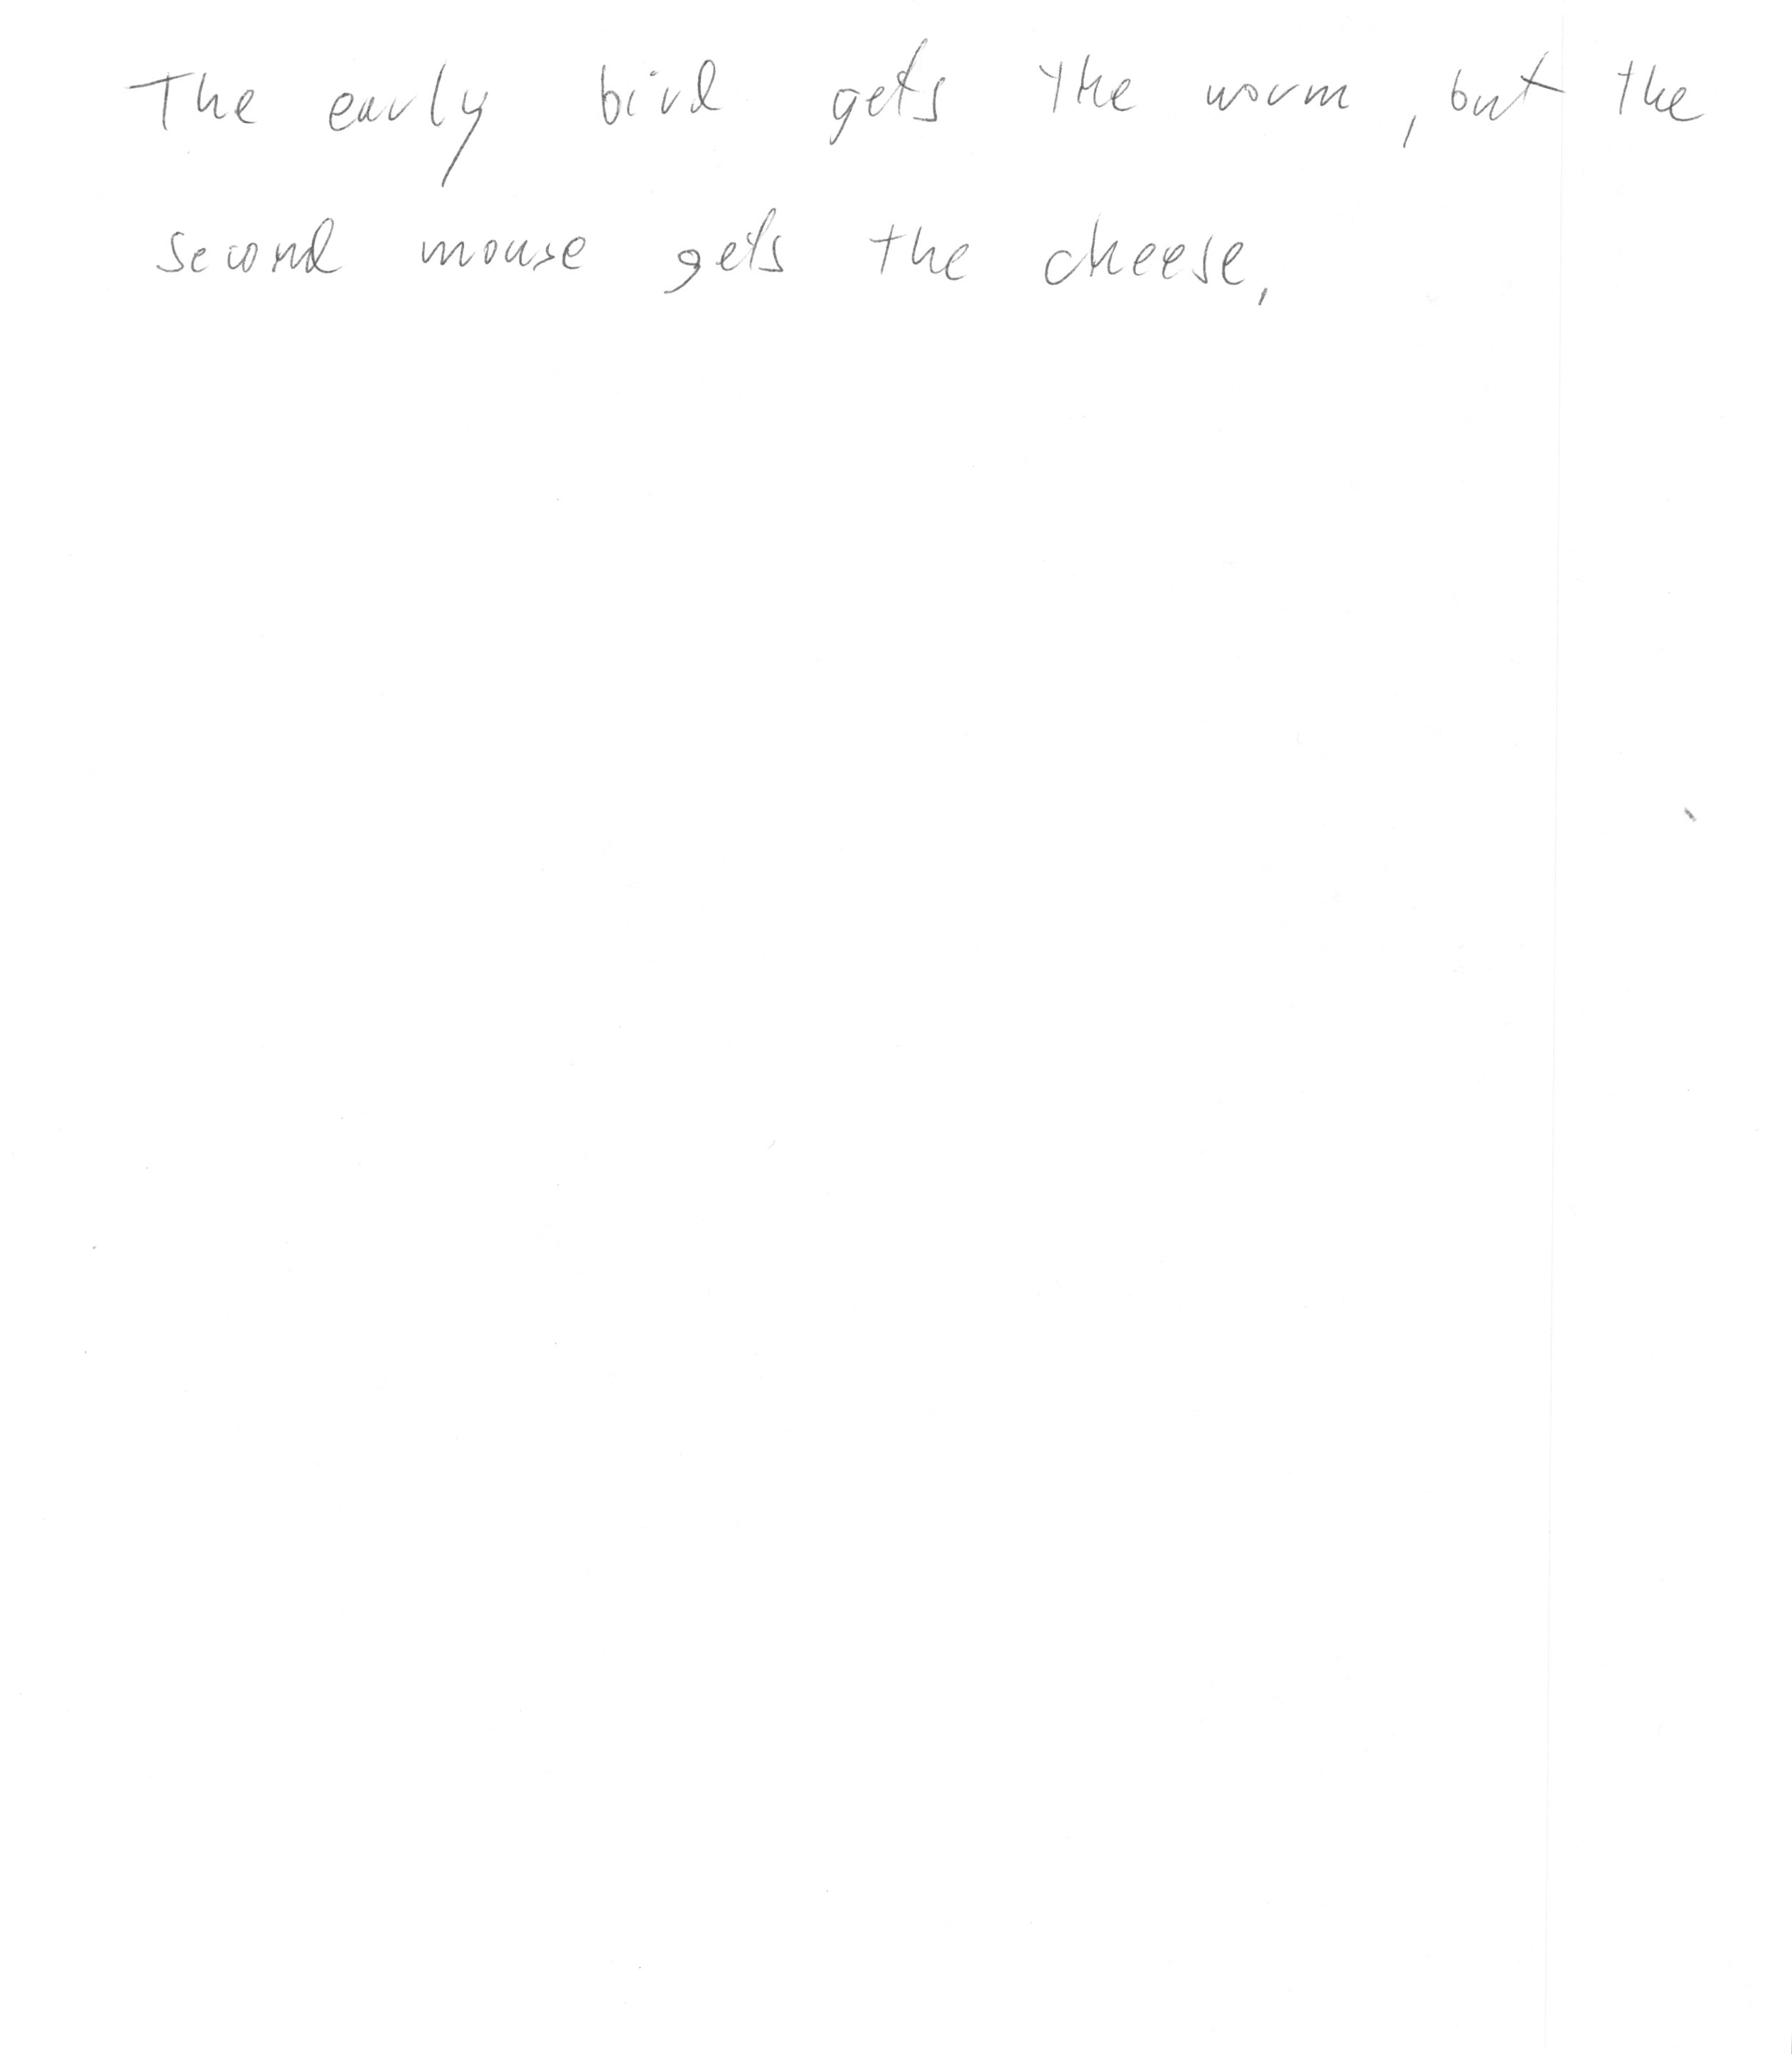 The early bird gets the worm, but the
second mouse gets the cheese,